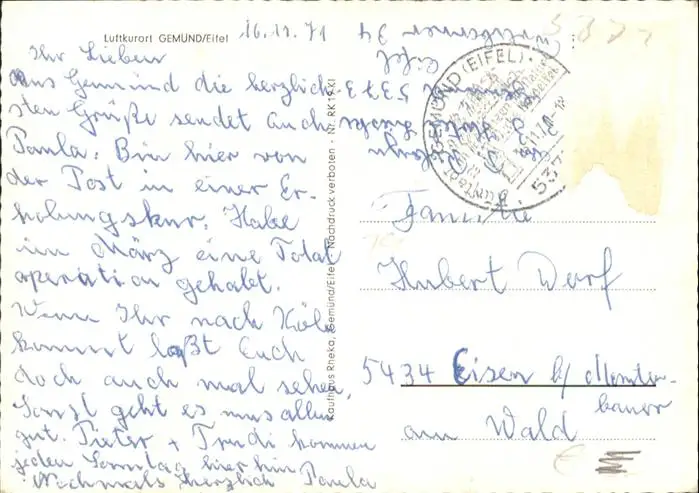 Luftkurort GEMÜND/Eifel
16.11.71
Ihr Lieben
Aus Gemünd die herzlich-
sten Grüße sendet Euch
Paula. Bin hier von
der Post in einer Er-
holungskur. Habe
im März eine Total
operation gehabt.
Wenn Ihr nach Köln
kommt laßt Euch
doch auch mal sehen,
Sonst geht es uns allen
gut. Pieter + Trudi kommen
jeden Sonntag hier hin
Nochmals herzlich Paula
Kaufhaus Rheka, Gemünd/Eifel · Nachdruck verboten - Nr. RK 19 Kl
5373
Eifel
GEMÜND (EIFEL)
537
Familie
Hubert Dorf
5434 Eisen b/ Monta-
baur
am Wald